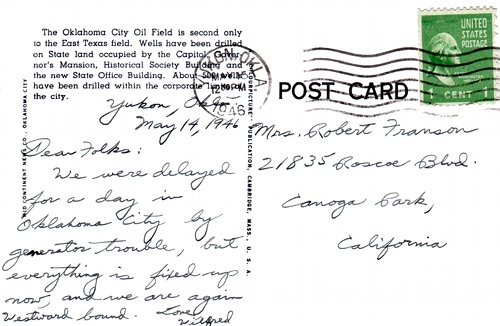 The Oklahoma City Oil Field is second only
to the East Texas field. Wells have been drilled
on State land occupied by the Capitol, Gover-
nor's Mansion, Historical Society Building and
the new State Office Building. About
have been drilled within the corporate limits of
the city.
MID CONTINENT NEWS CO., OKLAHOMA CITY
PUBLICATION, CAMBRIDGE, MASS., U. S. A.
YUKON, OKLA.
MAY
12 PM
1946
UNITED STATES
POSTAGE
1 CENT 1
POST CARD
Yukon, Okla.
May 14, 1946
Dear Folks:
We were delayed
for a day in
Oklahoma City by
generator trouble, but
everything is fixed up
now, and we are again
Westward bound. Love
Wilfred
Mrs. Robert Franson
21835 Roscoe Blvd.
Canoga Park,
California